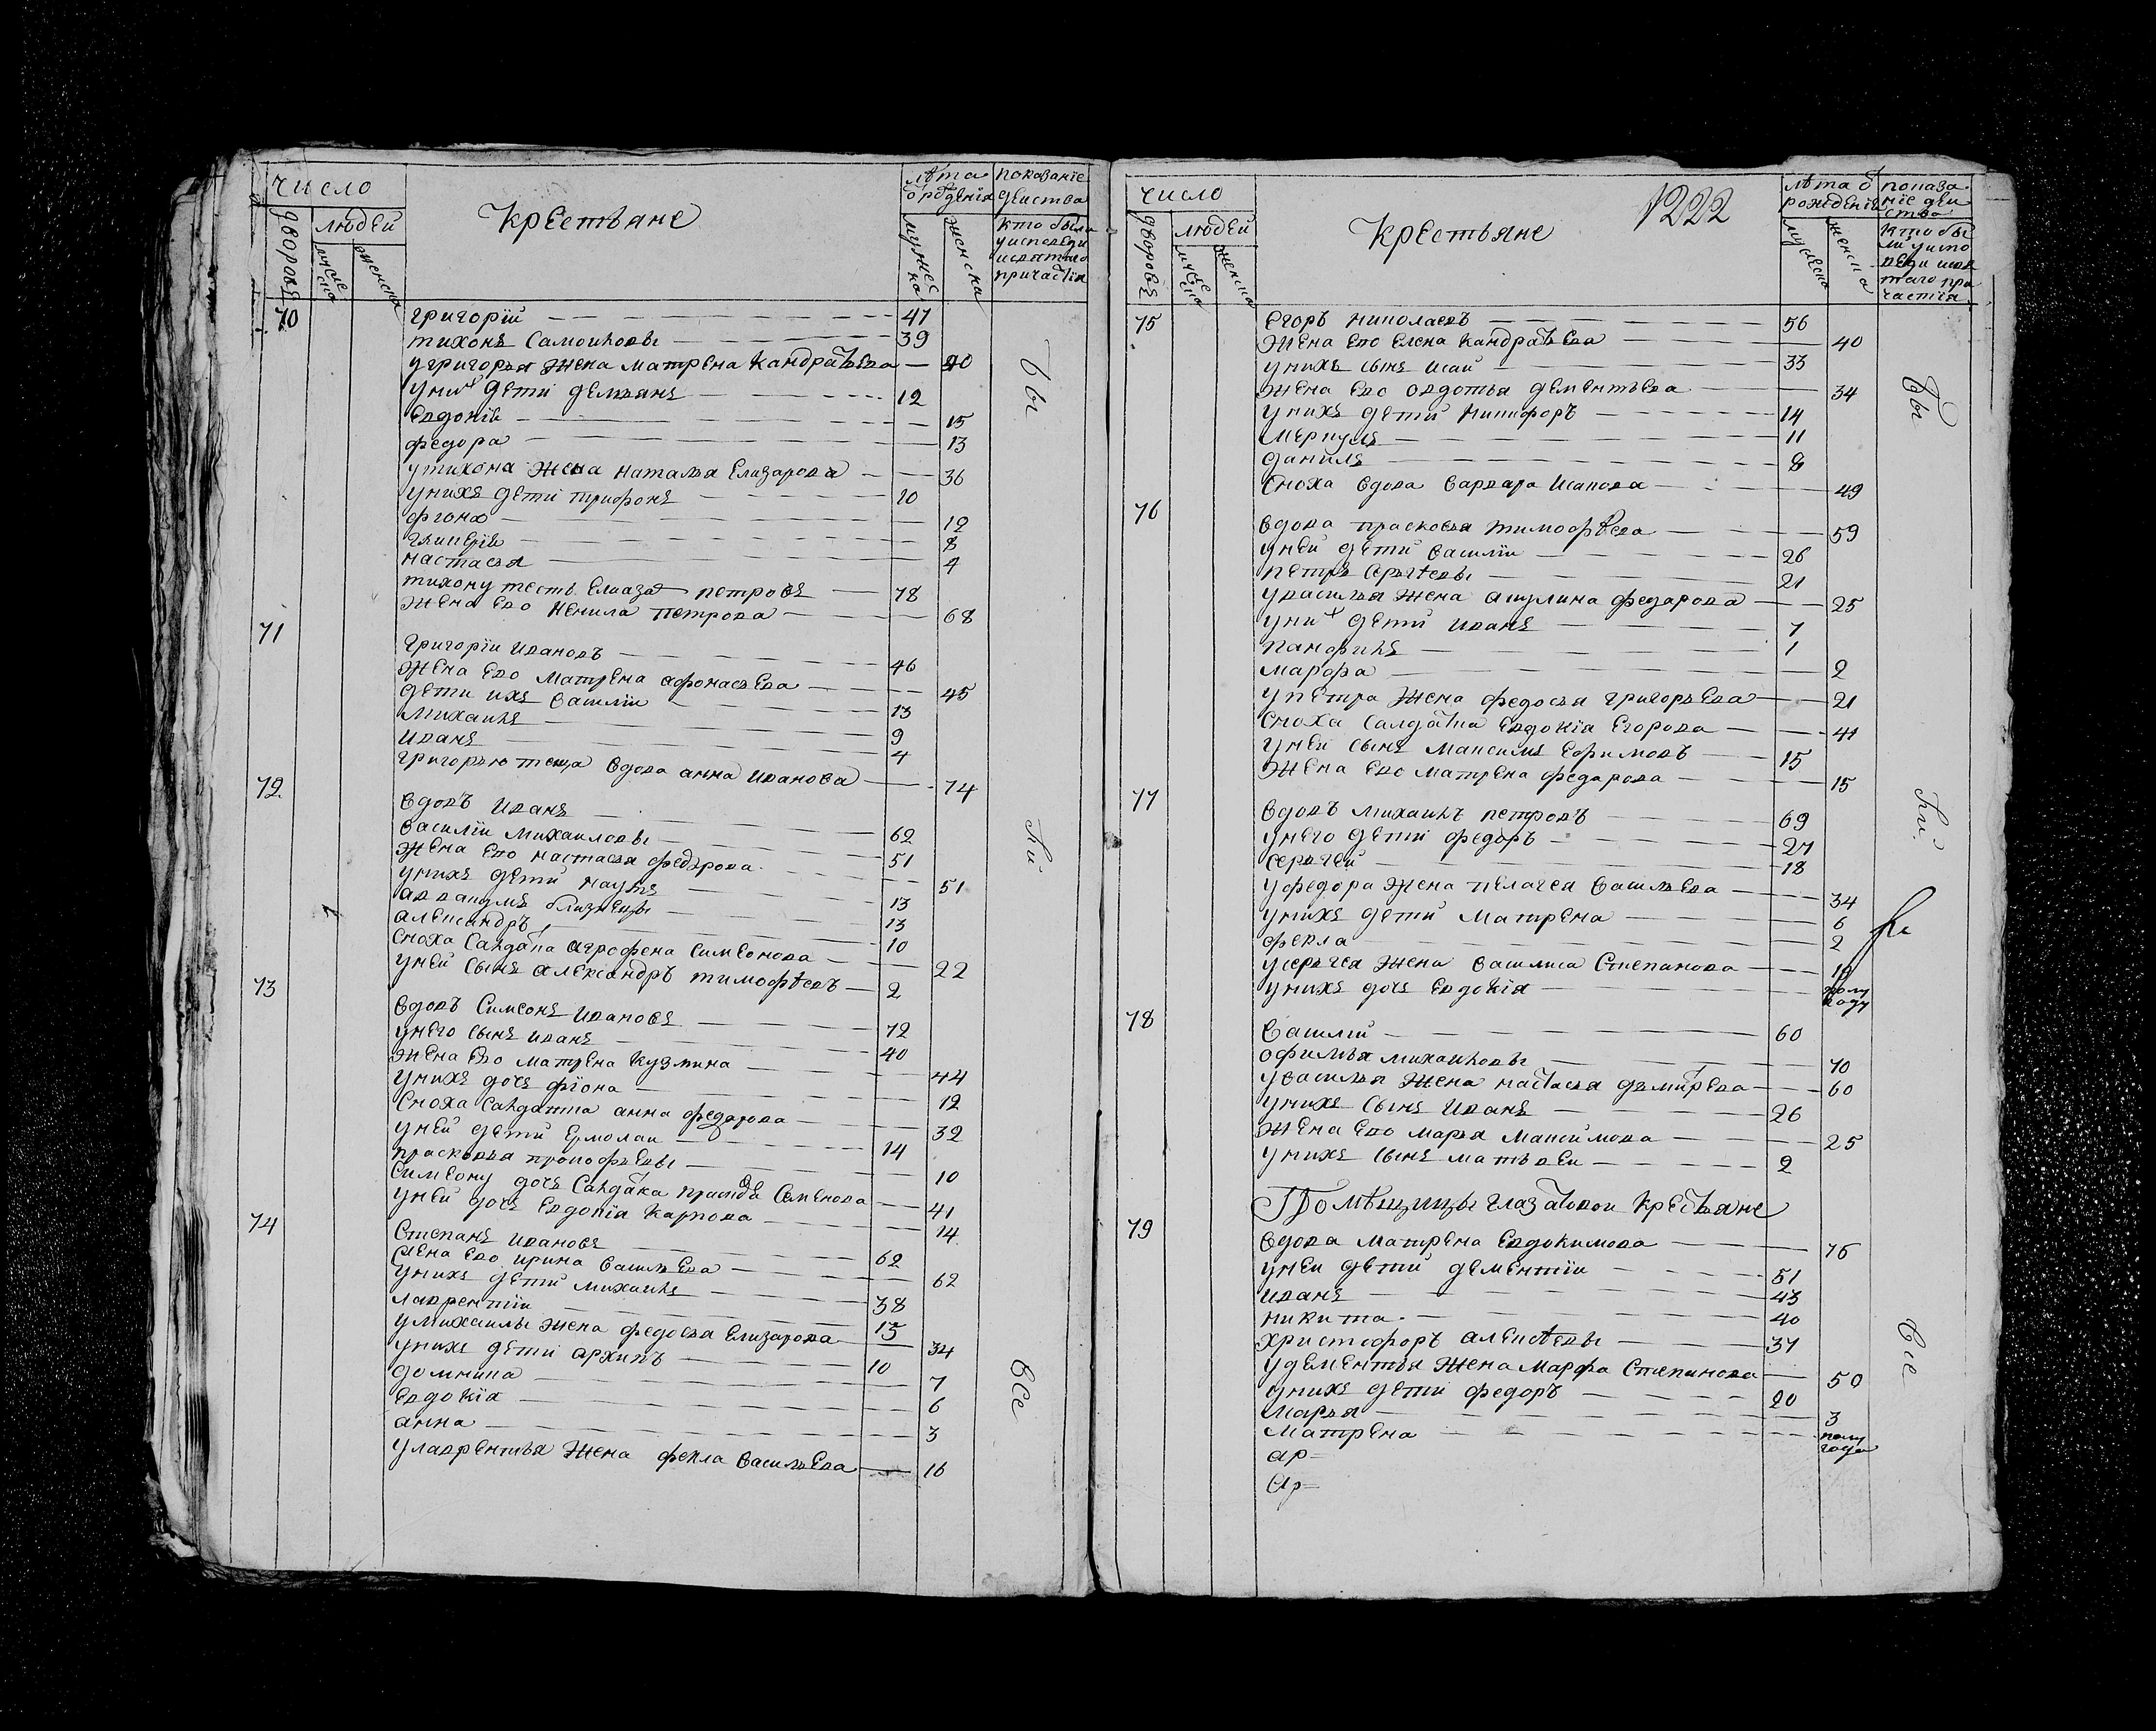 число
дворовъ
людей
мужеска
женска
Крестьяне
лѣта
ѿ рожденія
мужеска
женска
показаніе
дѣиства
кто былъ
у исповеди
и святаго
причастія
70 григорій 47
тихонъ Самоиловы 39
у григорья жена матрена кандратьева 40
у них дети демьянъ 12
Евдокіѣ 15
федора 13
у тихона жена наталья Елизарова 36
у нихъ дети трифонъ 10
фіона 12
гликеріѣ 8
настасья 4
тихону тесть Елиаза петровъ 78
жена Ево Ненила петрова 68
71 григоріи ивановъ 46
жена Ево матрена афонасьева 45
дети ихъ василіи 13
михаилъ 9
иванъ 4
григорью теща вдова анна иванова 74
72 вдовъ иванъ 62
василіи михаиловы 51
жена Ево настасья федорова 51
у нихъ дети наумъ 13
аввакумъ близнецы 13
александръ 10
сноха Салдатка агрофена Симеонова 22
у ней сынъ александръ тимофѣевъ 2
73 вдовъ Симеонъ ивановъ 72
у него сынъ иванъ 40
жена Ево матрена кузмина 44
у нихъ дочь фіона 12
сноха салдатка анна федарова 32
у ней дети Ермолаи 14
прасковья прокофьевы 10
Симеону дочь Салдатка праскове Семенова 41
у ней дочь Евдокія карпова 14
74 Степанъ ивановъ 62
жена Ево ирина васильева 62
у нихъ дети михаилъ 38
лаврентіи 15
у михаилы жена федосья Елизарова 34
у нихъ дети архипъ 10
домника 7
Евдокія 6
анна 3
у лаврентья жена фекла васильева 16
бы
ли
все
число
дворовъ
людей
мужеска
женска
Крестьяне
1222
лѣта ѿ
рожденія
мужеска
женска
показа
ніе дѣи
ства
кто бы
ли у испо
веди и свя
таго при
частія
75 Егоръ николаевъ 56
жена Ево Елена кандратьева 40
у нихъ сынъ исаи 33
жена Ево овдотья дементьева 34
у нихъ дети никифоръ 14
меркулъ 11
данилъ 8
сноха вдова варвара исакова 49
76 вдова прасковья тимофѣева 59
у ней дети василіи 26
петръ сергѣевы 21
у василья жена акулина федарова 25
у них дети иванъ 7
панфилъ 1
марфа 2
у петра жена федосья григорьева 21
сноха салдатка Евдокія Егорова 41
у ней сынъ максимъ Ефимовъ 15
жена Ево матрена федарова 15
77 вдовъ михаилъ петровъ 69
у него дети федоръ 27
сергѣй 18
у федора жена пелагея васильева 34
у нихъ дети матрена 6
фекла 2
у сергѣя жена василиса Степанова 19
у нихъ дочь Евдокія полу
году
78 василій 60
офимья михаиловы 70
у василья жена настасья дьмитрева 60
у нихъ сынъ иванъ 26
жена Ево марья максимова 25
у нихъ сынъ матьвеи 2
Помѣщицы глазатовои крестьяне
79 вдова матрена Евдокимова 76
у неи дети дементіи 51
иванъ 43
никита 40
христофоръ алексѣевы 37
у дементья жена марфа Степанова 50
у нихъ дети федоръ 20
марья 3
матрена полу
года
ар=
ар=
бы
ли
все